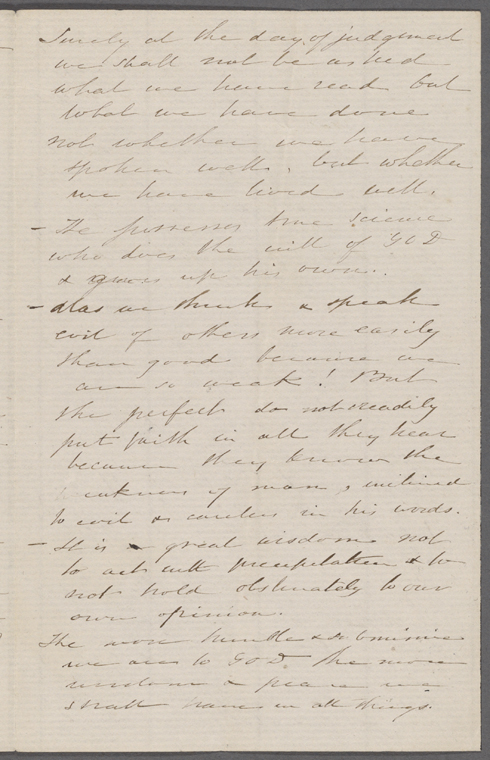 Surely at the day of judgment
we shall not be asked
what we have read but
what we have done
not whether we have
spoken well, but whether
we have lived well.
- He possesses true science
who does the will of GOD
& gives up his own.
- alas we think & speak
evil of others more easily
than good because we
are so weak! But
the perfect do not readily
put faith in all they hear
because they know the
weakness of man, inclined
to evil & careless in his words.
- It is great wisdom not
to act with precipitation & to
not hold obstinately to our
own opinion.
The more humble & submissive
we are to GOD the more
wisdom & peace we
shall have in all things.